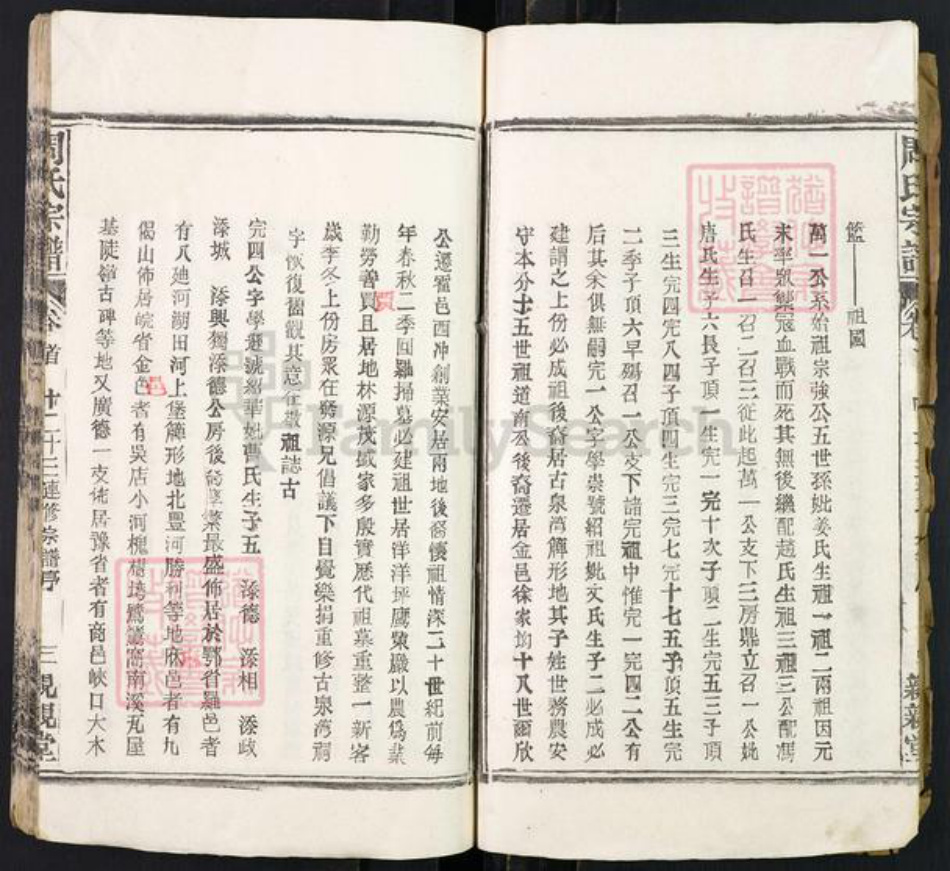 周氏宗譜
籃——祖國
萬一公系始祖宗強公五世孫妣姜氏生祖一祖二兩祖因元
末率眾禦寇血戰而死其無後繼配趙氏生祖三祖三公配馮
氏生召一召二召三從此起萬一公支下三房鼎立召一公妣
唐氏生子六長子頂一生完一完十次子頂二生完五三子頂
三生完四完八四子頂四生完三完七完十七五子頂五生完
二季子頂六早殤召一公支下諸完祖中惟完一完四二公有
后其余俱無嗣完一公字學崇號紹祖妣文氏生子二必成必
建謂之上份必成祖後裔居古泉灣簰形地其子姓世務農安
守本分十五世祖道南公後裔遷居金邑徐家坳十八世爾欣
親親堂
公遷霍邑西冲創業安居兩地後裔懷祖情深二十世紀前每
年春秋二季回羅掃墓必建祖世居洋洋坪鷹架巖以農為業
勤勞善賈且居地林源茂盛家多殷實歷代祖墓重整一新客
歲季冬上份房眾在發源兄倡議下自覺樂捐重修古泉灣祠
字恢復舊觀其意在敬祖誌古
完四公字學遜號紹華妣曹氏生子五 添德 添相 添政
添城 添興獨添德公房後裔繁最盛佈居於鄂省羅邑者
有八廸河湖田河上堡簰形地北豐河勝利等地麻邑者有九
偈山佈居皖省金邑者有吳店小河槐樹塆鷹窩南溪瓦屋
基陡嶺古碑等地又廣德一支徒居豫省者有商邑峽口大木
周氏宗譜 卷首 廿二十三連修宗譜序 三 親親堂
FamilySearch